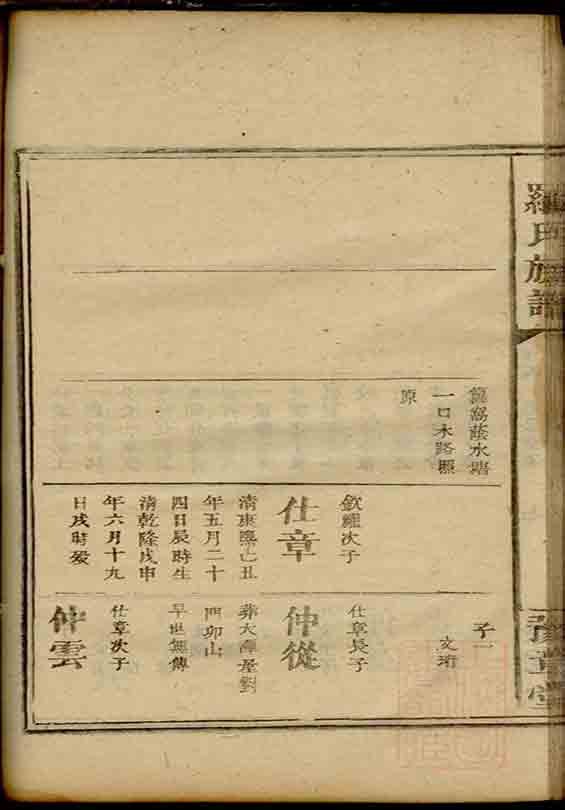 羅氏族譜
蔭水塘
一口水路照
原
欽維次子
仕章
清康熙己丑
年五月二十
四日辰時生
清乾隆戊申
年六月十九
日戌時歿
子一
文珩
仕章長子
仲從
葬大潭屋對
門卯山
早世無傳
仕章次子
仲雲